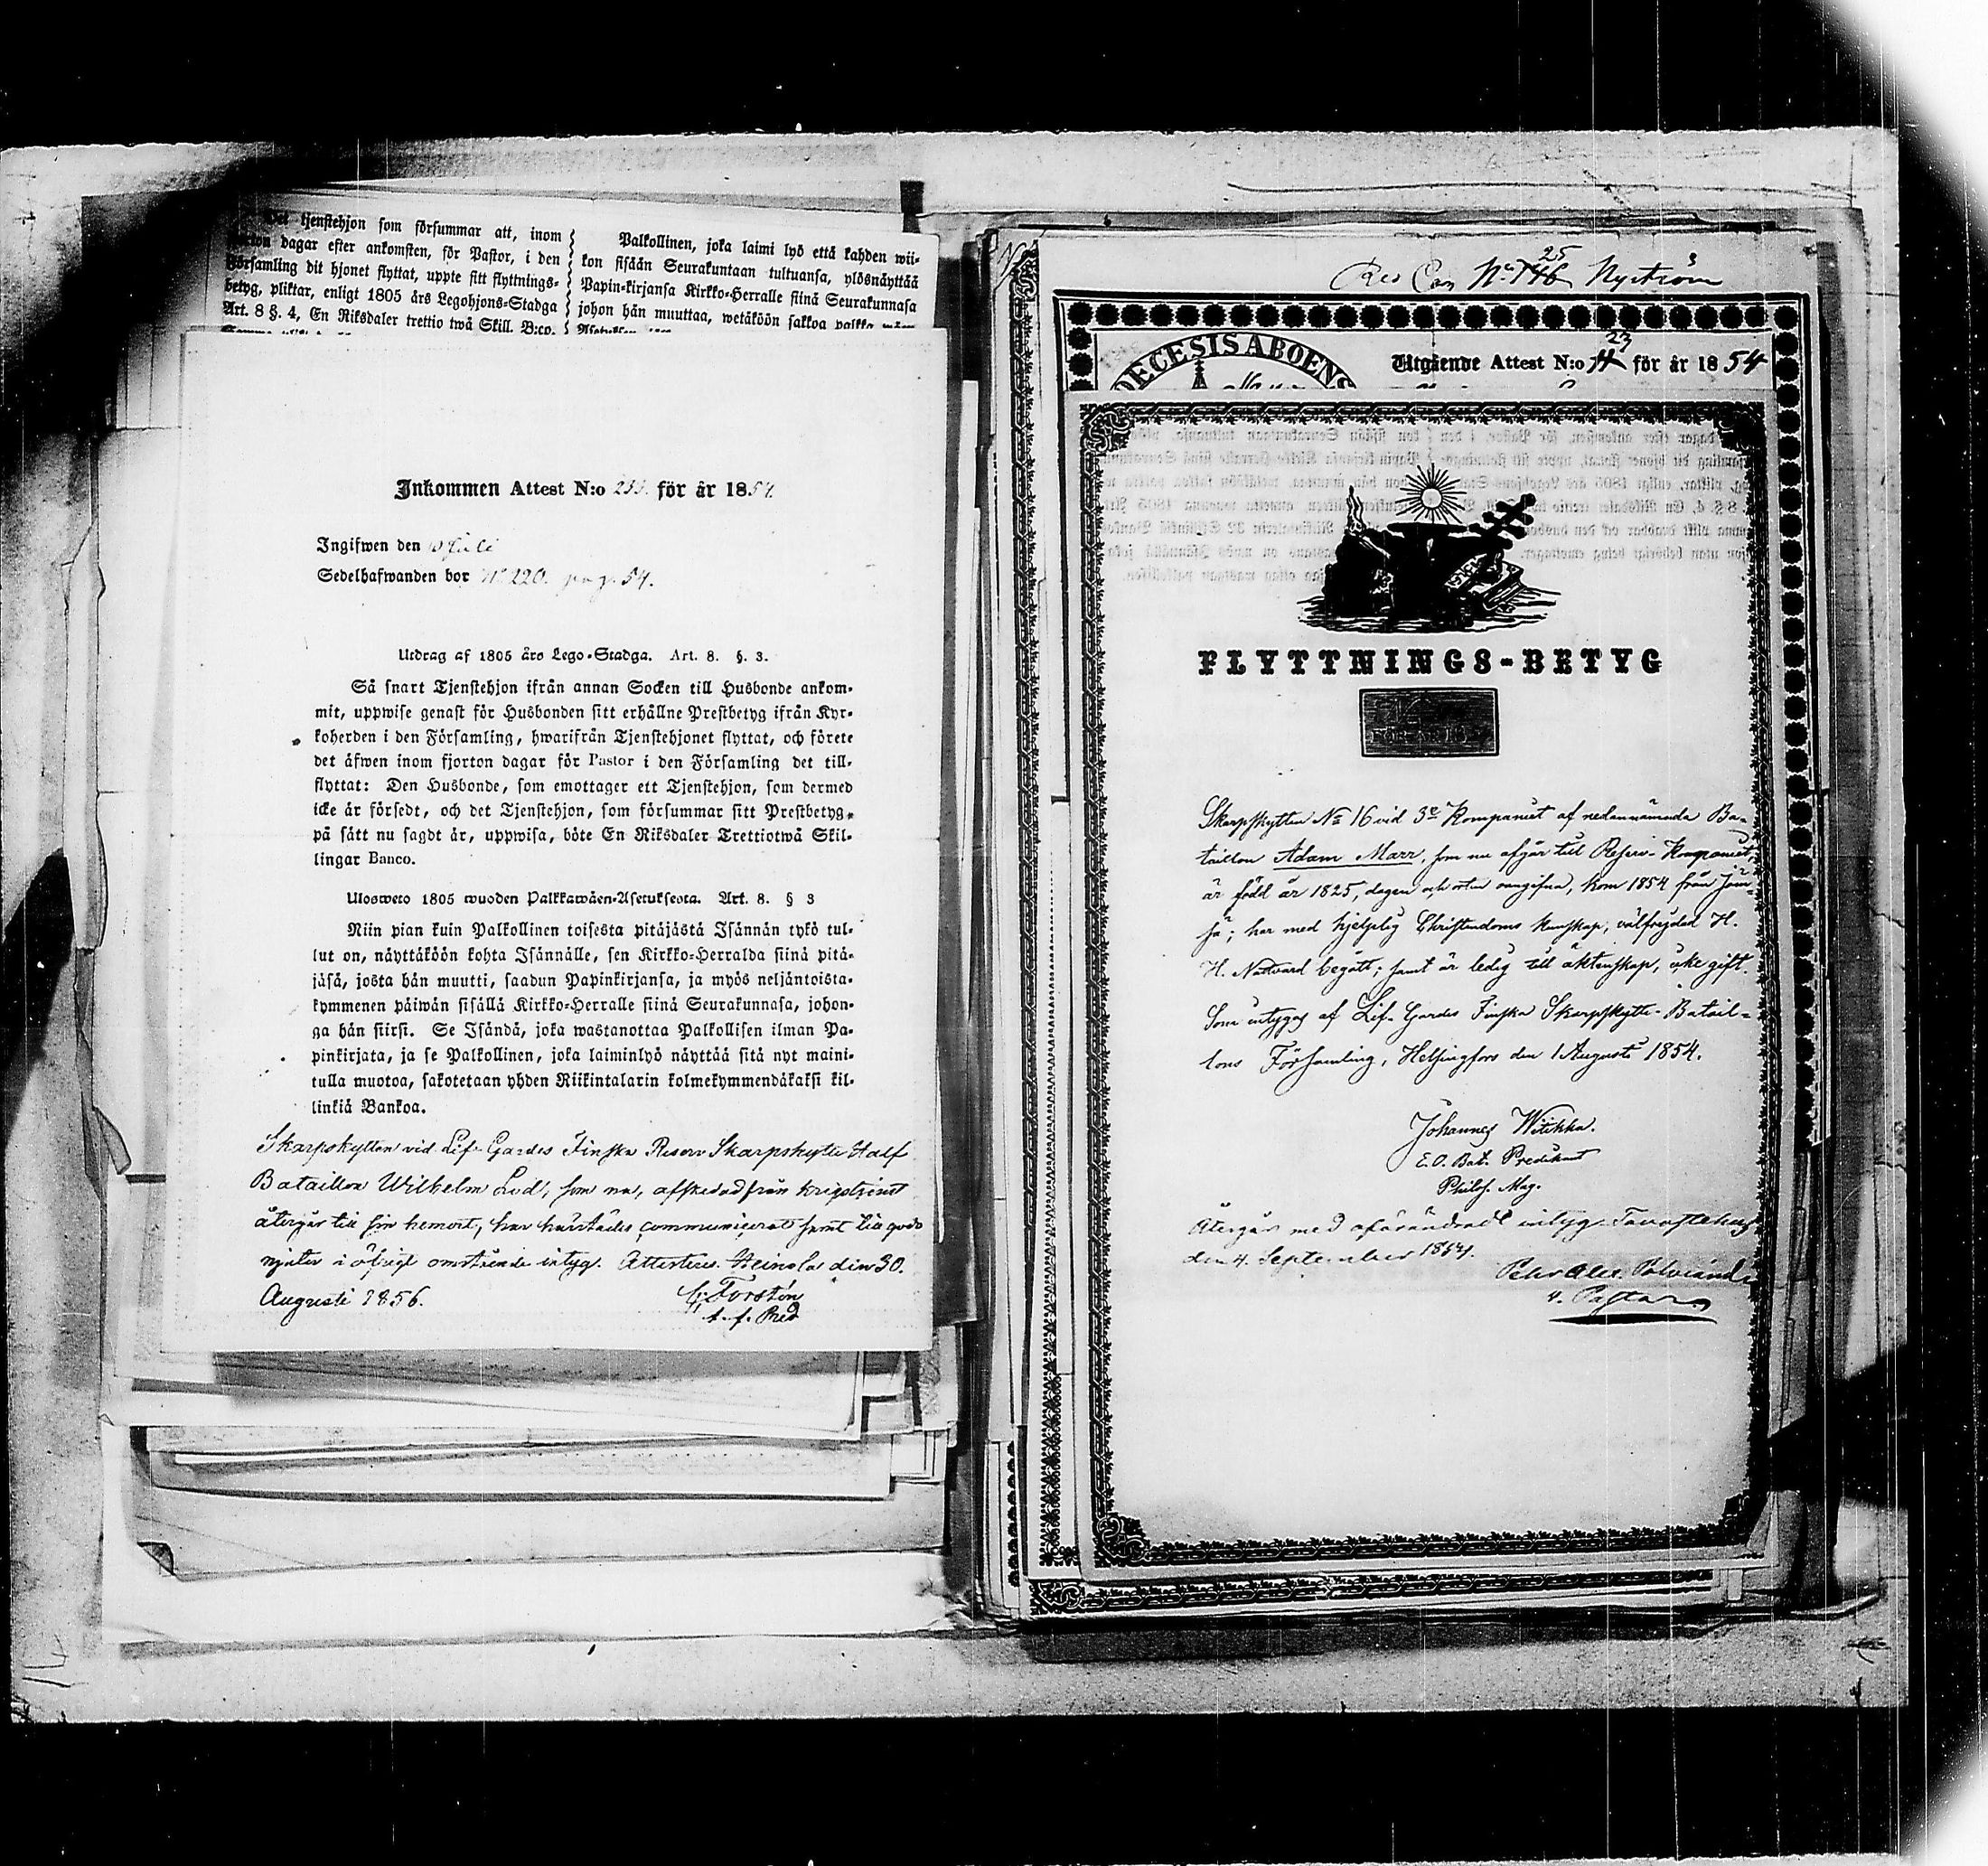 tjenstehjon som försummar att, inom
dagar efter ankomsten, för Pastor, i den
Församling dit hjonet flyttat, uppte sitt flyttnings-
betyg, pliktar, enligt 1805 års Legohjons-Stadga
Art. 8 §. 4, En Riksdaler trettio twå Skill. B:co.
Palkollinen, joka laimi lyö että kahden wii-
kon sisään Seurakuntaan tultuansa, ylösnäyttää
Papin-kirjansa Kirkko-Herralle siinä Seurakunnasa
johon hän muuttaa, wetäköön sakkoa palkka
Inkommen Attest N:o för år 1854.
Ingifwen den 10 Juli
Sedelhafwanden bor N:o 220. pag. 54.
Utdrag af 1805 års Lego-Stadga. Art. 8. §. 3.
Så snart Tjenstehjon ifrån annan Socken till Husbonde ankom-
mit, uppwise genast för Husbonden sitt erhållne Prestbetyg ifrån Kyr-
koherden i den Församling, hwarifrån Tjenstehjonet flyttat, och förete
det äfwen inom fjorton dagar för Pastor i den Församling det till-
flyttat: Den Husbonde, som emottager ett Tjenstehjon, som dermed
icke är försedt, och det Tjenstehjon, som försummar sitt Prestbetyg,
på sätt nu sagdt är, uppwisa, böte En Riksdaler Trettiotwå Skil-
lingar Banco.
Ulosweto 1805 wuoden Palkkawäen-Asetuksesta. Art. 8. § 3
Niin pian kuin Palkollinen toisesta pitäjästä Isännän tykö tul-
lut on, näyttäköön kohta Isännälle, sen Kirkko-Herralda siinä pitä-
jäsä, josta hän muutti, saadun Papinkirjansa, ja myös neljäntoista-
kymmenen päiwän sisällä Kirkko-Herralle siinä Seurakunnasa, johon-
ga hän siirsi. Se Isändä, joka wastanottaa Palkollisen ilman Pa-
pinkirjata, ja se Palkollinen, joka laiminlyö näyttää sitä nyt maini-
tulla muotoa, sakotetaan yhden Riikintalarin kolmekymmendäkaksi kil-
linkiä Bankoa.
Skarpskytten vid Lif-Gardes Finska Reserv Skarpskytte Half
Bataillon Wilhelm Lod, som nu, afskedad från krigstjenst
återgår till sin hemort, har härstädes communicerat samt till godo
njuter i öfrigt omstående intyg. Attesteras. Heinola den 30.
Augusti 1856.
G: Forstén
t. f. Pred
Res Com N:o 25 Nyström
DECESIS ABOENS
Utgående Attest N:o 23 för år 1854
FLYTTNINGS-BETYG
Skarpskytten No 16 vid 3e Kompaniet af nedannämnda Ba-
taillon Adam Marr, som nu afgår till Reserv-Kompaniet,
är född år 1825, dagen och orten oangifna, kom 1854 från Jäm-
sä; har med hjelplig Christendoms kunskap, välfrejdad H.
H. Nattvard begått; samt är ledig till äktenskap, icke gift.
Som intygas af Lif-Gardes Finska Skarpskytte-Batail-
lons Församling, Helsingfors den 1 Augusti 1854.
Johannes Witikka.
E.O. Bat. Predikant
Philos. Mag.
Återgår med oförändradt intyg. Tavastehus
den 4. September 1854.
Pehr Alex. Polviander
v. Pastor